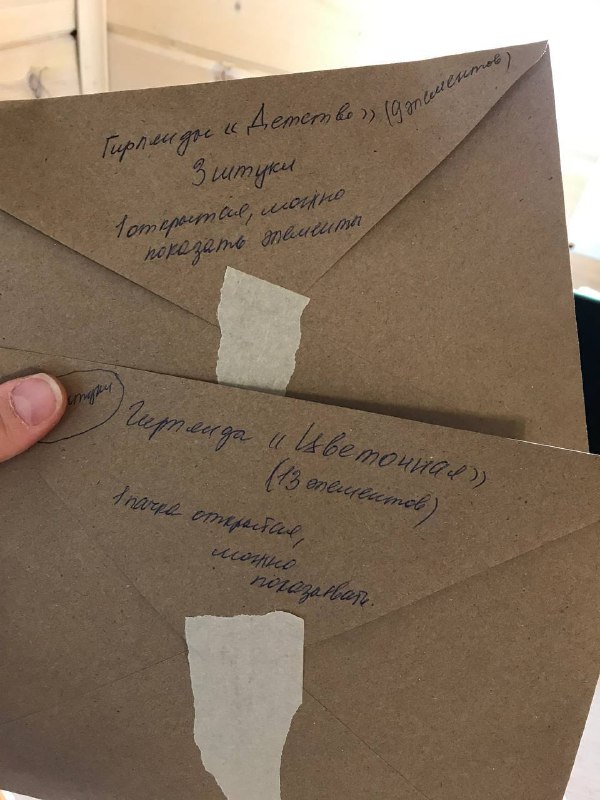 Гирлянды «Детство» (9 элементов)
3 штуки
1 открытая, можно
показать элементы
штуки
Гирлянда «Цветочная»
(13 элементов)
1 пачка открытая,
можно
показывать.